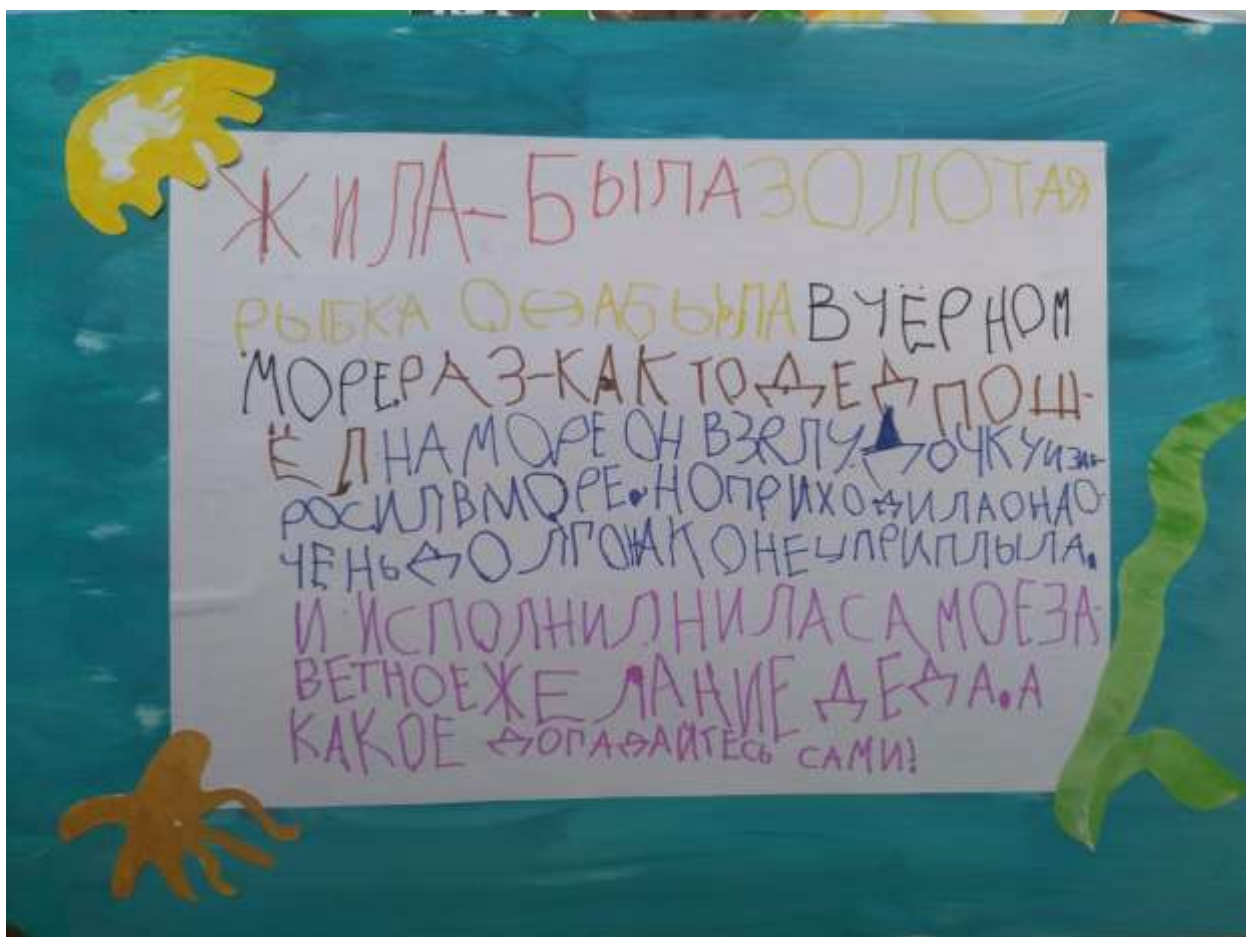 ЖИЛА-БЫЛА ЗОЛОТАЯ
РЫБКА ОНА БЫЛА В ЧЁРНОМ
МОРЕ РАЗ-КАК ТО ДЕД ПОШ-
ЁЛ НА МОРЕ ОН ВЗЯЛ УДОЧКУ И ЗАБ-
РОСИЛ В МОРЕ. НО ПРИХОДИЛА ОНА О-
ЧЕНЬ ДОЛГО НАКОНЕЦ ПРИПЛЫЛА.
И ИСПОЛНИЛНИЛА САМОЕ ЗА-
ВЕТНОЕ ЖЕЛАНИЕ ДЕДА. А
КАКОЕ ДОГАДАЙТЕСЬ САМИ!